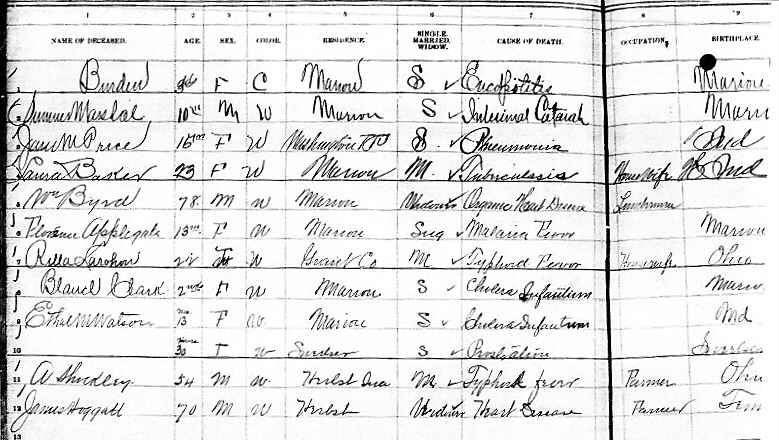 1 2 3 4 5 6 7 8 9
NAME OF DECEASED. AGE. SEX. COLOR. RESIDENCE. SINGLE. MARRIED. WIDOW. CAUSE OF DEATH. OCCUPATION. BIRTHPLACE.
1 Burden F C Marion S Marion
2 Marshal 10 M W Marion S Intestinal Catarah Mari
3 Jane M Price 16 F W Washington S Pneumonia Ind
4 Laura Baker 23 F W Marion M. Tuberculosis House Wife Ind
5 Wm Byrd 78 M W Marion Widower Organic Heart Disease
6 Florence Applegate 13 F W Marion Sing Malaria Fever Marion
7 Rilla 22 F W Grant Co M Typhoid Fever Housewife Ohio
8 Blanch Clark F W Marion S Cholera Infantum Marion
9 Ethel M Watson 13 F W Marion S Cholera Infantum Md
10 30 F W S Prostration
11 A Shockley 54 M W Herbst Ind M Typhoid fever Farmer Ohio
12 James Hoggatt 70 M W Herbst Widower Heart Disease Farmer Tenn
13